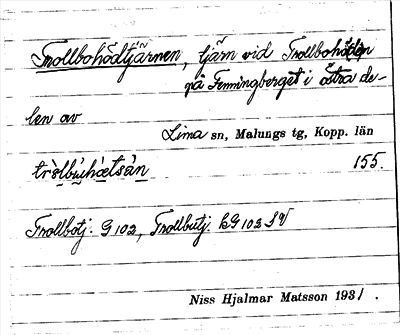 Trollbohödtjärnen, tjärn vid Trollbohöden
på Fenningberget i östra de-
len av
Lima sn, Malungs tg, Kopp. län
155.
Trollbotj. G 102, Trollbutj. kG 102 SV
Niss Hjalmar Matsson 1931.